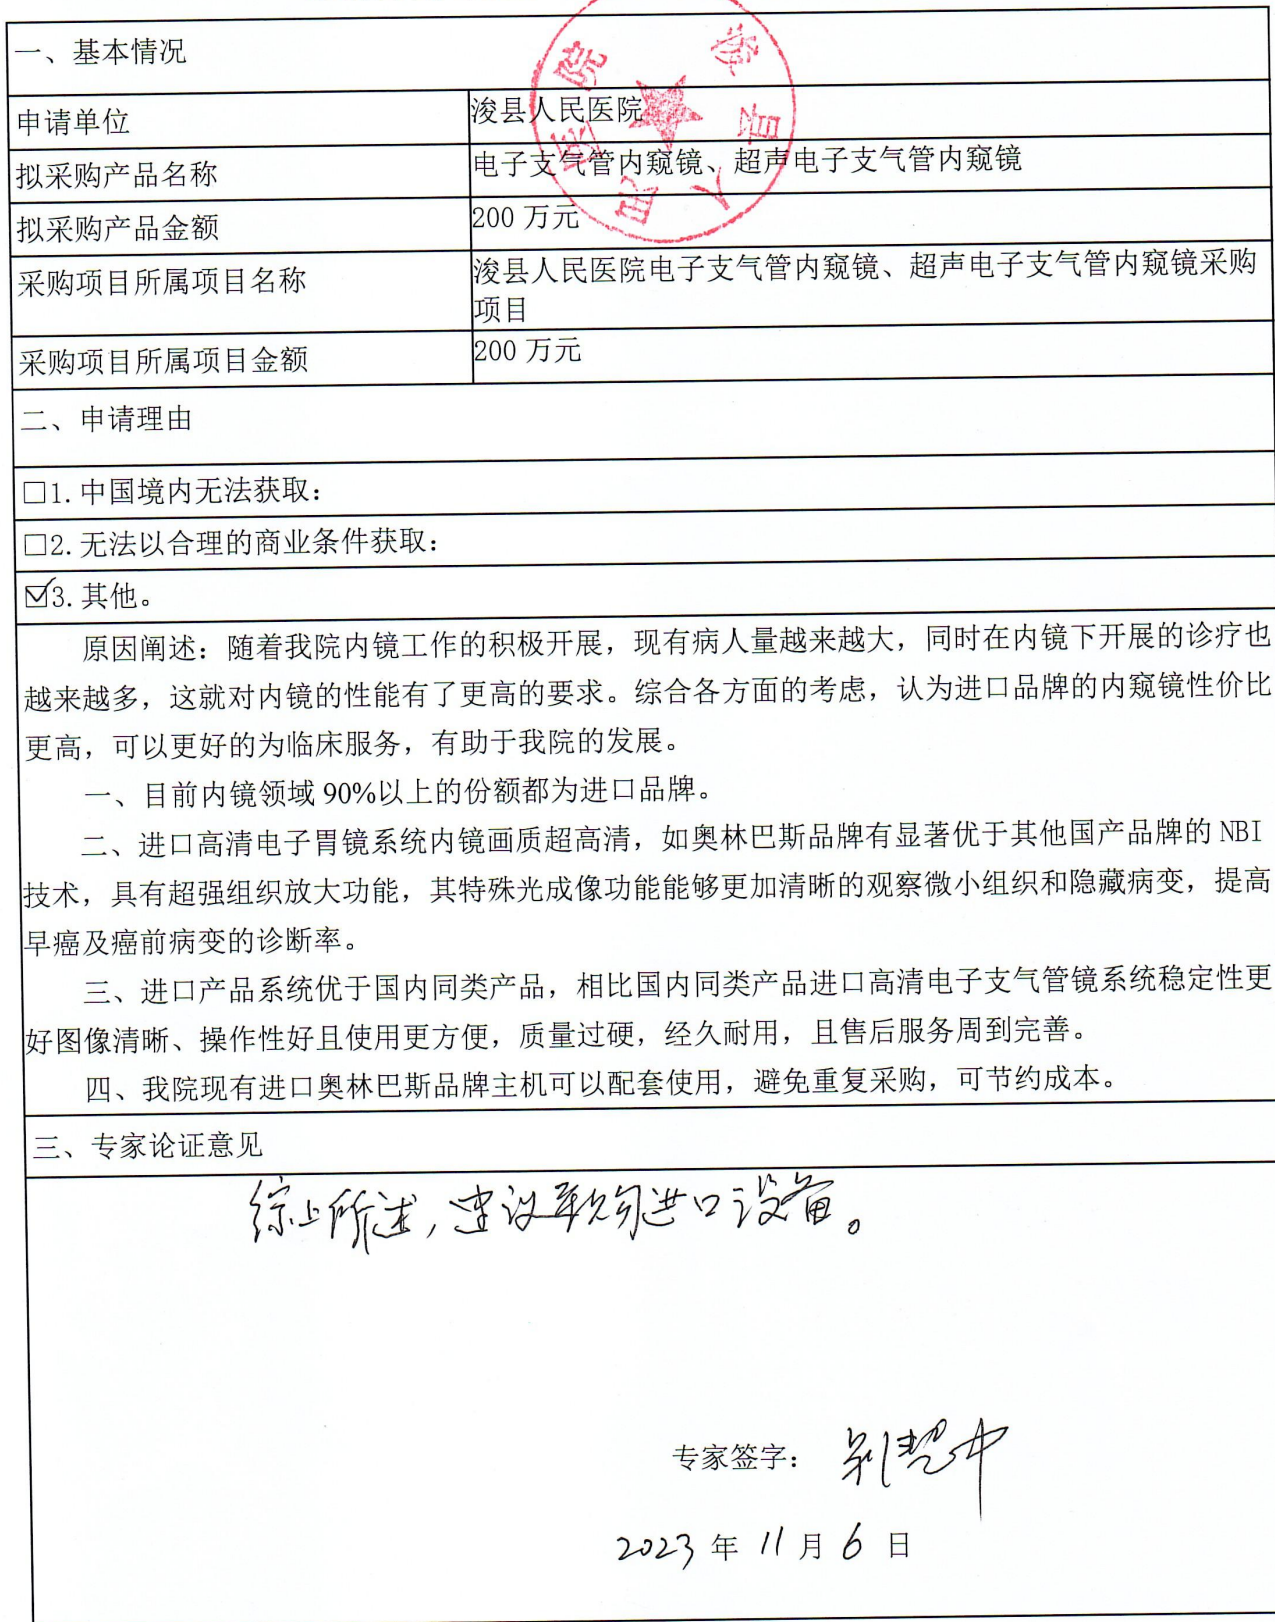 一、基本情况
申请单位
浚县人民医院
拟采购产品名称
电子支气管内窥镜、超声电子支气管内窥镜
拟采购产品金额
200 万元
采购项目所属项目名称
浚县人民医院电子支气管内窥镜、超声电子支气管内窥镜采购
项目
采购项目所属项目金额
200 万元
二、申请理由
□1.中国境内无法获取：
□2.无法以合理的商业条件获取：
☑3.其他。
原因阐述：随着我院内镜工作的积极开展，现有病人量越来越大，同时在内镜下开展的诊疗也
越来越多，这就对内镜的性能有了更高的要求。综合各方面的考虑，认为进口品牌的内窥镜性价比
更高，可以更好的为临床服务，有助于我院的发展。
一、目前内镜领域 90%以上的份额都为进口品牌。
二、进口高清电子胃镜系统内镜画质超高清，如奥林巴斯品牌有显著优于其他国产品牌的 NBI
技术，具有超强组织放大功能，其特殊光成像功能能够更加清晰的观察微小组织和隐藏病变，提高
早癌及癌前病变的诊断率。
三、进口产品系统优于国内同类产品，相比国内同类产品进口高清电子支气管镜系统稳定性更
好图像清晰、操作性好且使用更方便，质量过硬，经久耐用，且售后服务周到完善。
四、我院现有进口奥林巴斯品牌主机可以配套使用，避免重复采购，可节约成本。
三、专家论证意见
综上所述，建议采购进口设备。
专家签字：
2023 年 11 月 6 日
浚县人民医院